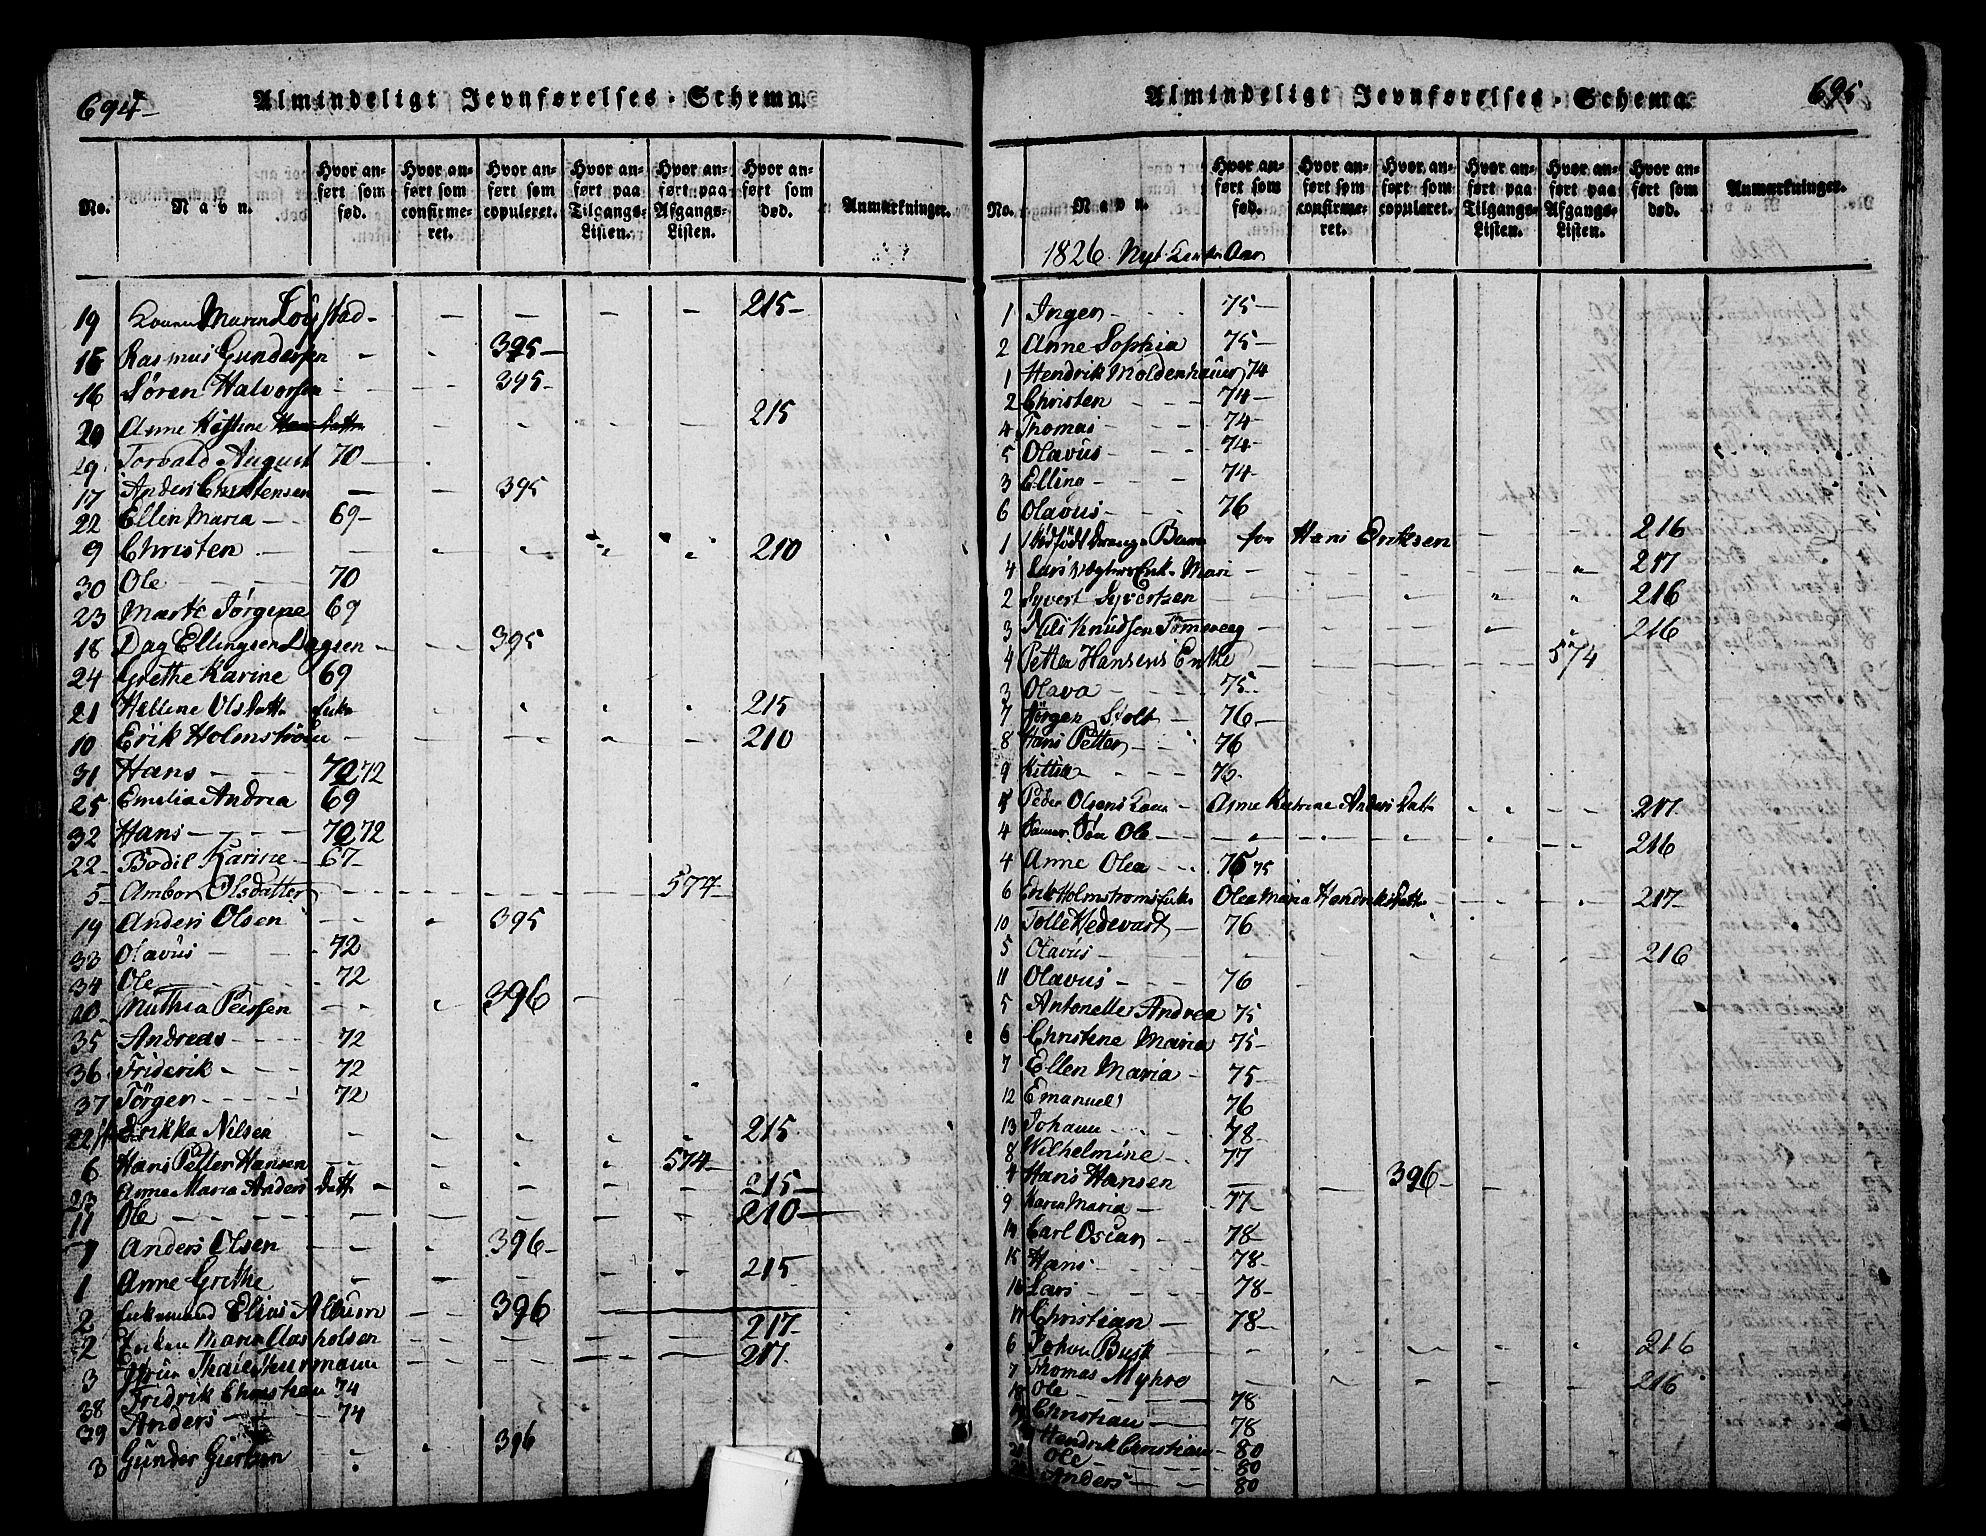 694
Almindeligt Jevnførelses-Schema.
No.
Navn.
Hvor anført som fød.
Hvor anført som confirmeret.
Hvor anført som copuleret.
Hvor anført paa Tilgangs-Listen.
Hvor anført paa Afgangs-Listen.
Hvor anført som død.
Anmærkninger.
19 Maren 215
15 Rasmus Gundersen 395
16 Søren Halvorsen 395
20 Anne 215
29 Torvald August 70
17 Anders Christensen 395
22 Ellen Maria 69
9 Christen 210
30 Ole 70
23 Marte Jørgine 69
18 Dag Ellingsen Dagsen 395
24 Grethe Karine 69
21 Hellene Olsdatt 215
10 Erik Holmstrøm 210
31 Hans 72
25 Emelia Andrea 69
32 Hans 72
22 Bodil Karine 67
5 Ambor Olsdatter 574
19 Anders Olsen 395
33 Olavus 72
34 Ole 72
20 Mathia Peersen 396
35 Andreas 72
36 Friderik 72
37 Jörgen 72
22 Erikka Nilsen 215
6 Hans Petter Hansen 574
23 Anne Maria Anders Datt 215
11 Ole 210
1 Anders Olsen 396
1 Anne Grethe 215
2 Enkemand Elias Album 396
2 Maria 217
3 217
38 Fridrik Christian 74
39 Anders 74
3 Gunder 396
695
Almindeligt Jevnførelses-Schema.
No.
Navn.
Hvor anført som fød.
Hvor anført som confirmeret.
Hvor anført som copuleret.
Hvor anført paa Tilgangs-Listen.
Hvor anført paa Afgangs-Listen.
Hvor anført som død.
Anmærkninger.
1826. Nyt
1 Inger 75
2 Anne Sophia 75
1 Hendrik Moldenhauer 74
2 Christen 74
4 Thomas 74
5 Olavus 74
3 Elling 74
6 Olavus 76
1 1 dødfødt Drenge Barn for Hans Eriksen 216
4 Lars Enk. Mari 217
2 Syvert Syvertsen 216
3 Nils Knudsen 216
4 Petter Hansens Enke 574
3 Olava 75
7 Jørgen Stolt 76
8 Hans Petter 76
9 Kittil 76
5 Peder Olsens Kone Anne Katrine Anders Datt 217
4 Ole 216
4 Anne Olea 75
6 Erik Holmstroms Enke Olea Maria Hendriksdatt 217
10 Tolle Hedevart 76
5 Olavus 216
11 Olavus 76
5 Antonette Andrea 75
6 Christine Maria 75
7 Ellen Maria 75
12 Emanuel 76
13 Johann 78
8 Wilhelmine 77
4 Hans Hansen 396
9 Karen Maria 77
14 Carl Oscar 78
15 Hans 78
16 Lars 78
17 Christian 78
6 Johan Busk 216
7 Thomas Myhre 216
18 Ole 78
19 Christian 78
Hendrik Christian 80
Ole 80
Anders 80